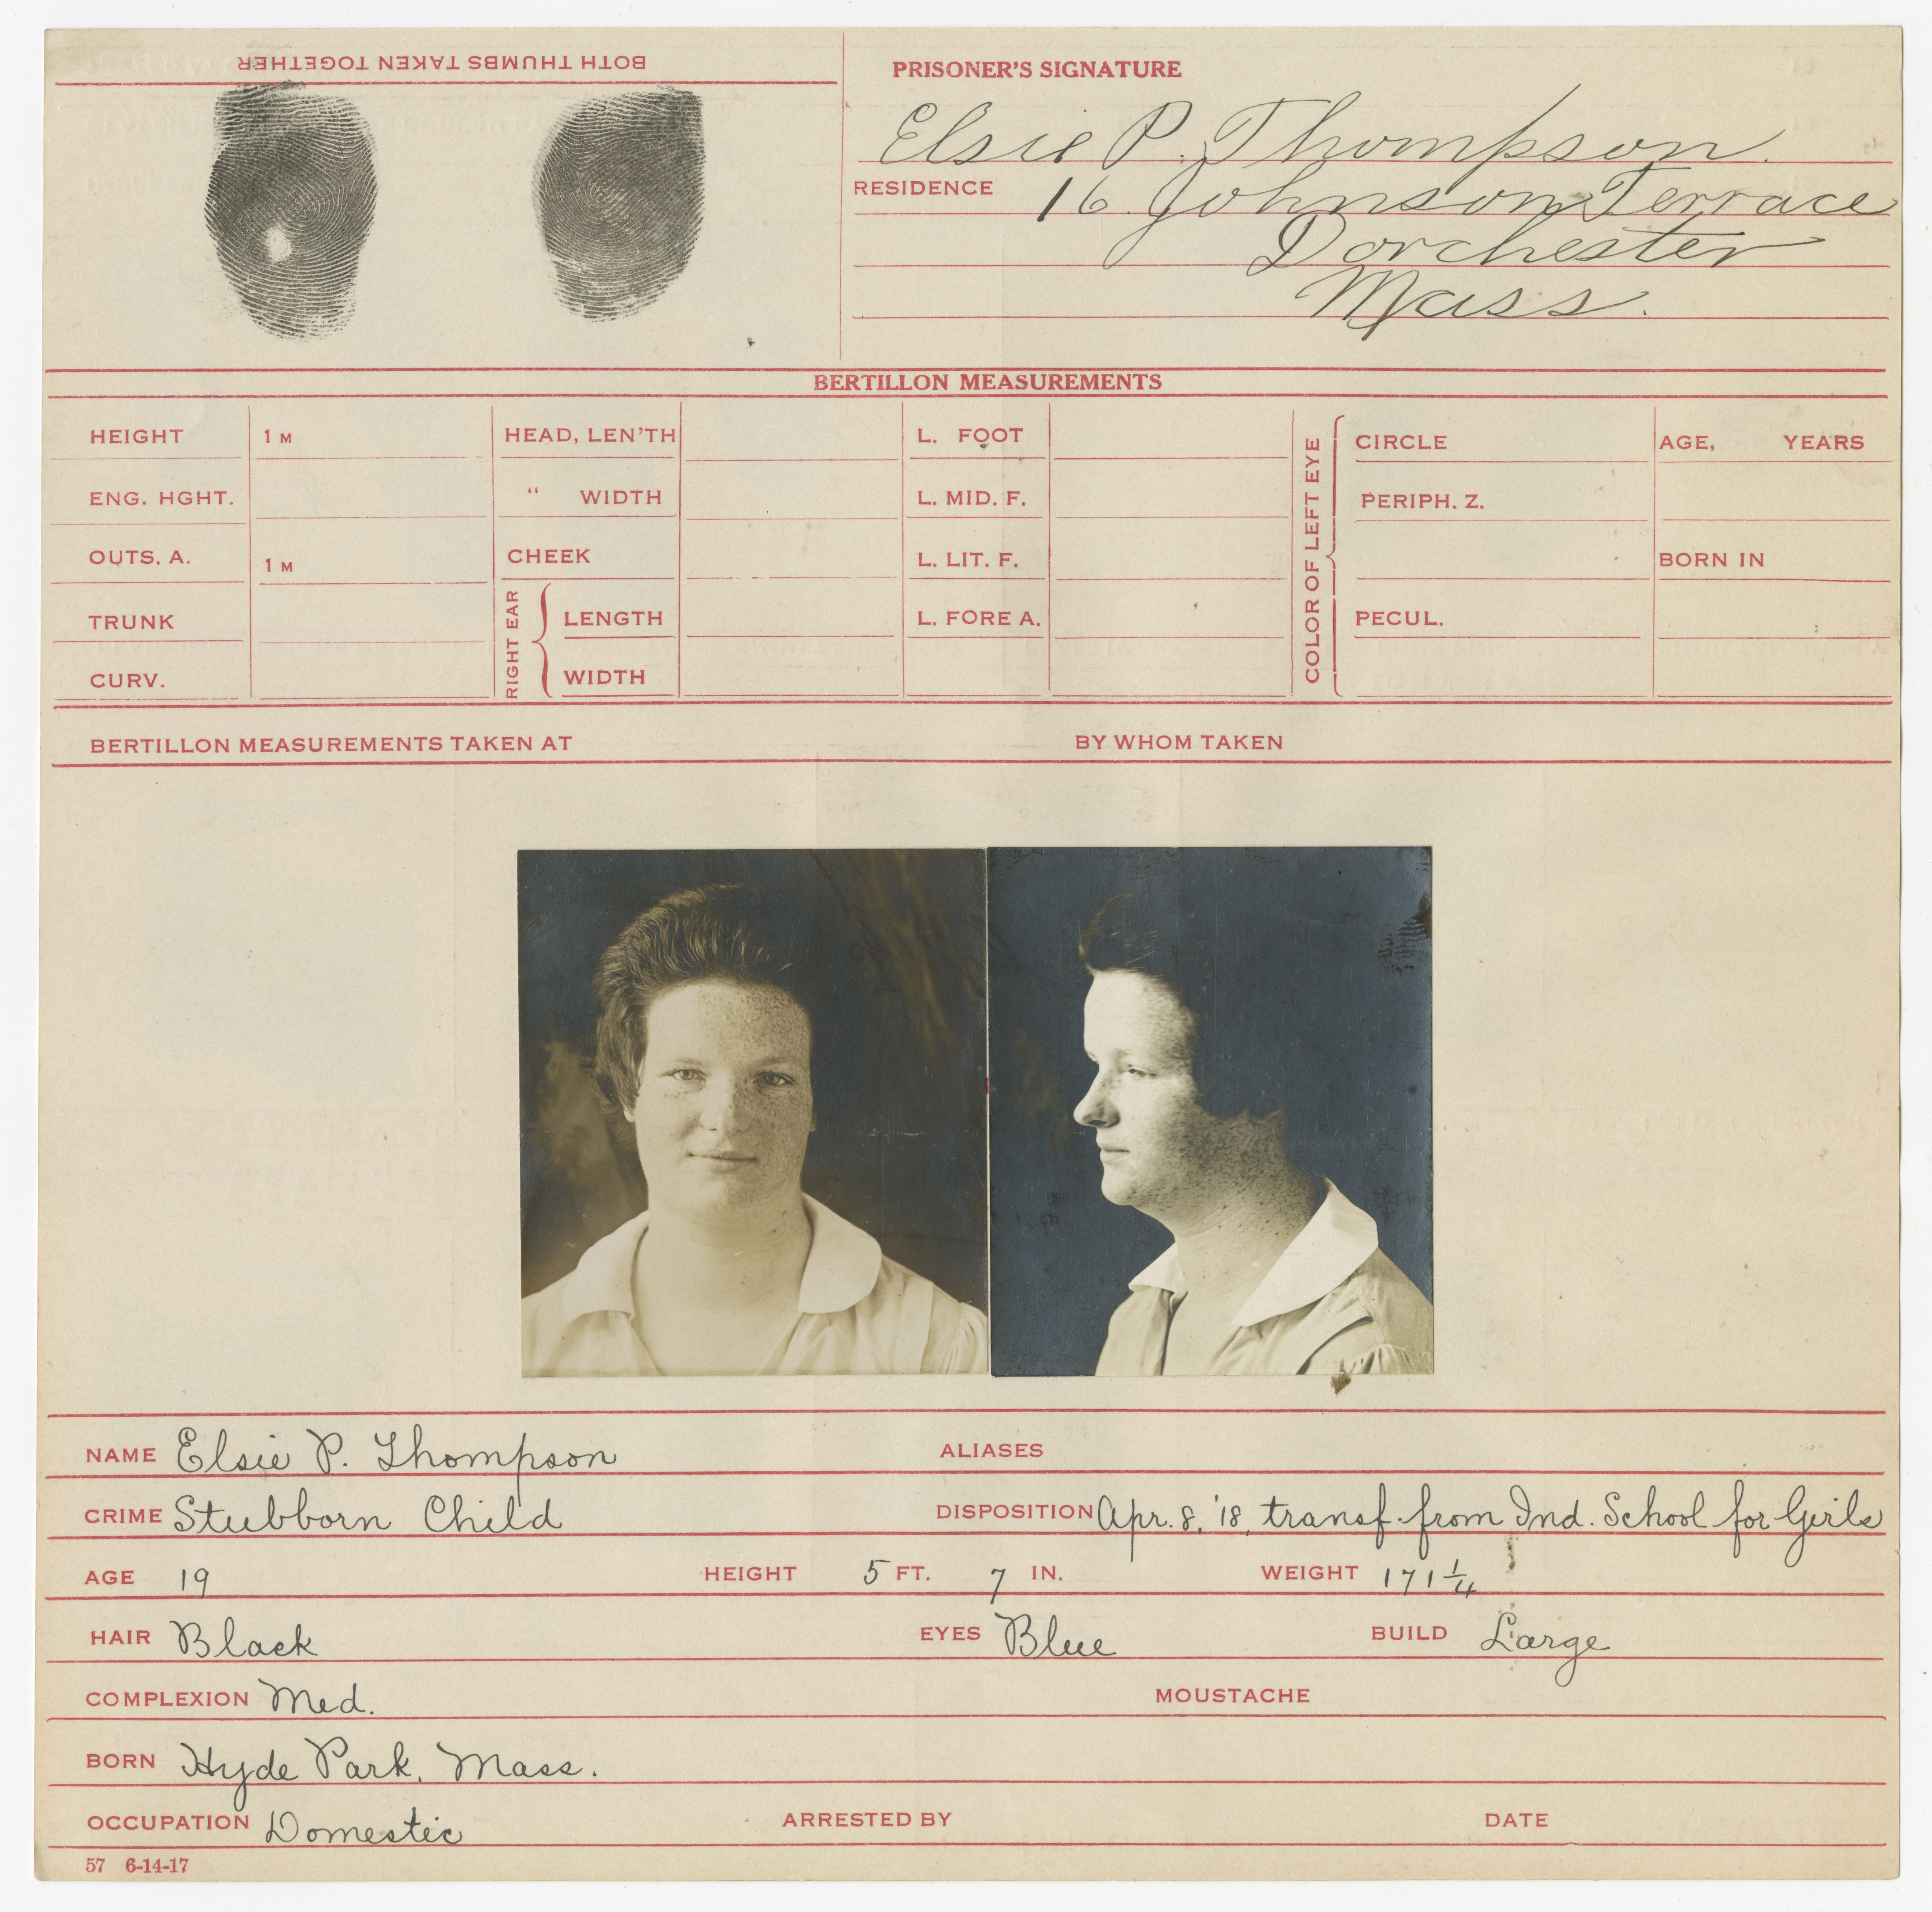 BOTH THUMBS TAKEN TOGETHER
PRISONER'S SIGNATURE
Elsie P. Thompson.
RESIDENCE 16 Johnson Terrace
Dorchester
Mass.
BERTILLON MEASUREMENTS
HEIGHT 1 M HEAD, LEN'TH L. FOOT CIRCLE AGE, YEARS
ENG. HGHT. " WIDTH L. MID. F. PERIPH. Z.
OUTS. A. 1 M CHEEK L. LIT. F. BORN IN
TRUNK LENGTH L. FORE A. PECUL.
CURV. WIDTH
RIGHT EAR
COLOR OF LEFT EYE
BERTILLON MEASUREMENTS TAKEN AT BY WHOM TAKEN
NAME Elsie P. Thompson ALIASES
CRIME Stubborn Child DISPOSITION Apr. 8, '18, transf. from Ind. School for Girls
AGE 19 HEIGHT 5 FT. 7 IN. WEIGHT 171 1/4
HAIR Black EYES Blue BUILD Large
COMPLEXION Med. MOUSTACHE
BORN Hyde Park, Mass.
OCCUPATION Domestic ARRESTED BY DATE
57 6-14-17